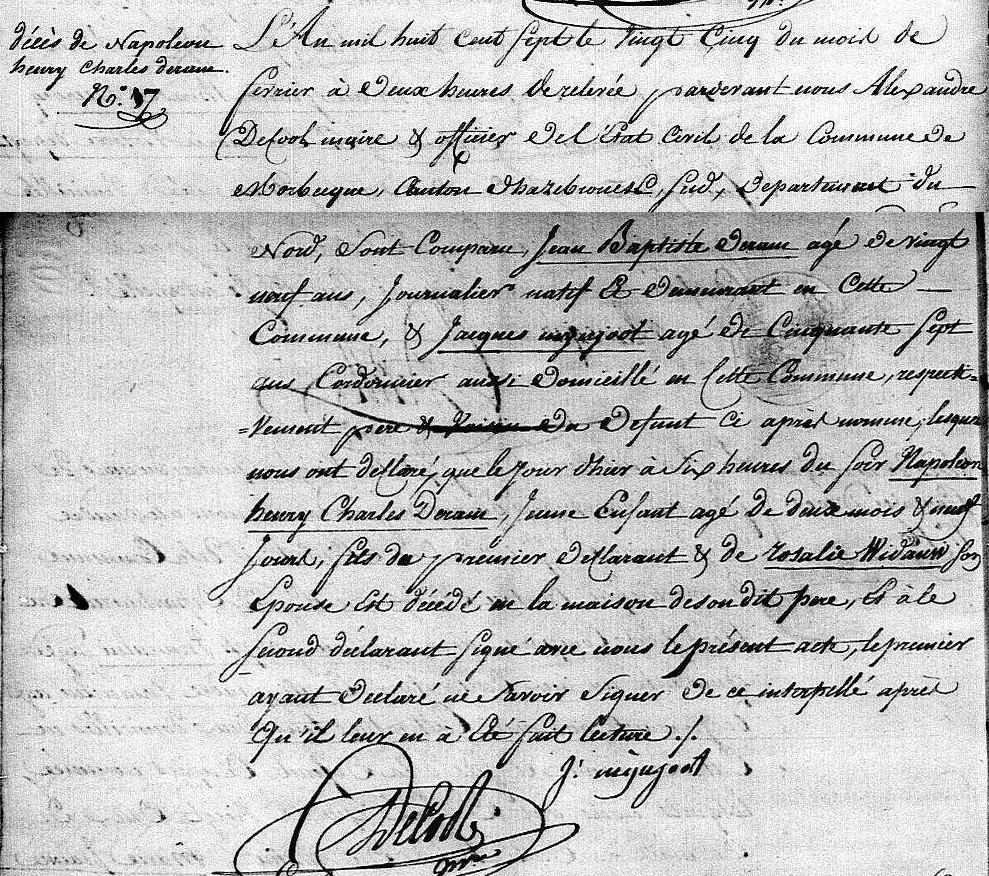 décès de Napoleon
henry Charles Deram.
N.° 17
L'An mil huit cent sept le vingt Cinq du mois de
fevrier à deux heures de relevée pardevant nous Alexandre
Decool maire & officier de l'état Civil de la Commune de
Morbecque, Canton d'hazebrouck, sud, departement du
Nord, sont Comparu, Jean Baptiste Deram agé de vingt
neuf ans, journalier natif & demeurant en Cette
Commune, & Jacques mynjoot agé de Cinquante sept
ans Cordonnier aussi domicillé en Cette Commune, respecti=
=vement pere & Voisin du defunt ci après nommé, lesquels
nous ont déclaré, que le jour d'hier à six heures du soir Napoleon
henry Charles Deram, jeune Enfant agé de deux mois & neuf
jours, fils du premier déclarant & de rosalie Widauw son
Epouse est décédé en la maison de son dit pere, Et à le
second déclarant signé avec nous le présent acte, le premier
ayant declaré ne savoir signer de ce interpellé après
Qu'il leur en à Eté fait lecture ./.
J: mynjoot
DeCool